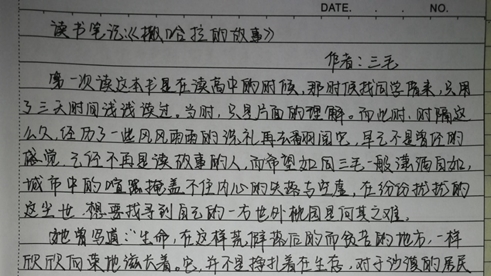 DATE. NO.
读书笔记《撒哈拉的故事》
作者:三毛
第一次读这本书是在读高中的时候,那时候找同学借来,只用
了三天时间浅浅读过。当时,只是片面的理解。而此时,时隔这
么久,经历了一些风风雨雨的洗礼再去翻阅它,早已不是曾经的
感觉,已经不再是读故事的人,而希望如同三毛一般潇洒自如,
城市中的喧嚣掩盖不住内心的失落与空虚,在纷纷扰扰的
这尘世,想要找寻到自己的一方世外桃园是何其之难。
她曾写道:"生命,在这样荒僻落后的而贫苦的地方,一样
欣欣向荣地滋长着。它,并不是挣扎着在生存,对于沙漠的居民